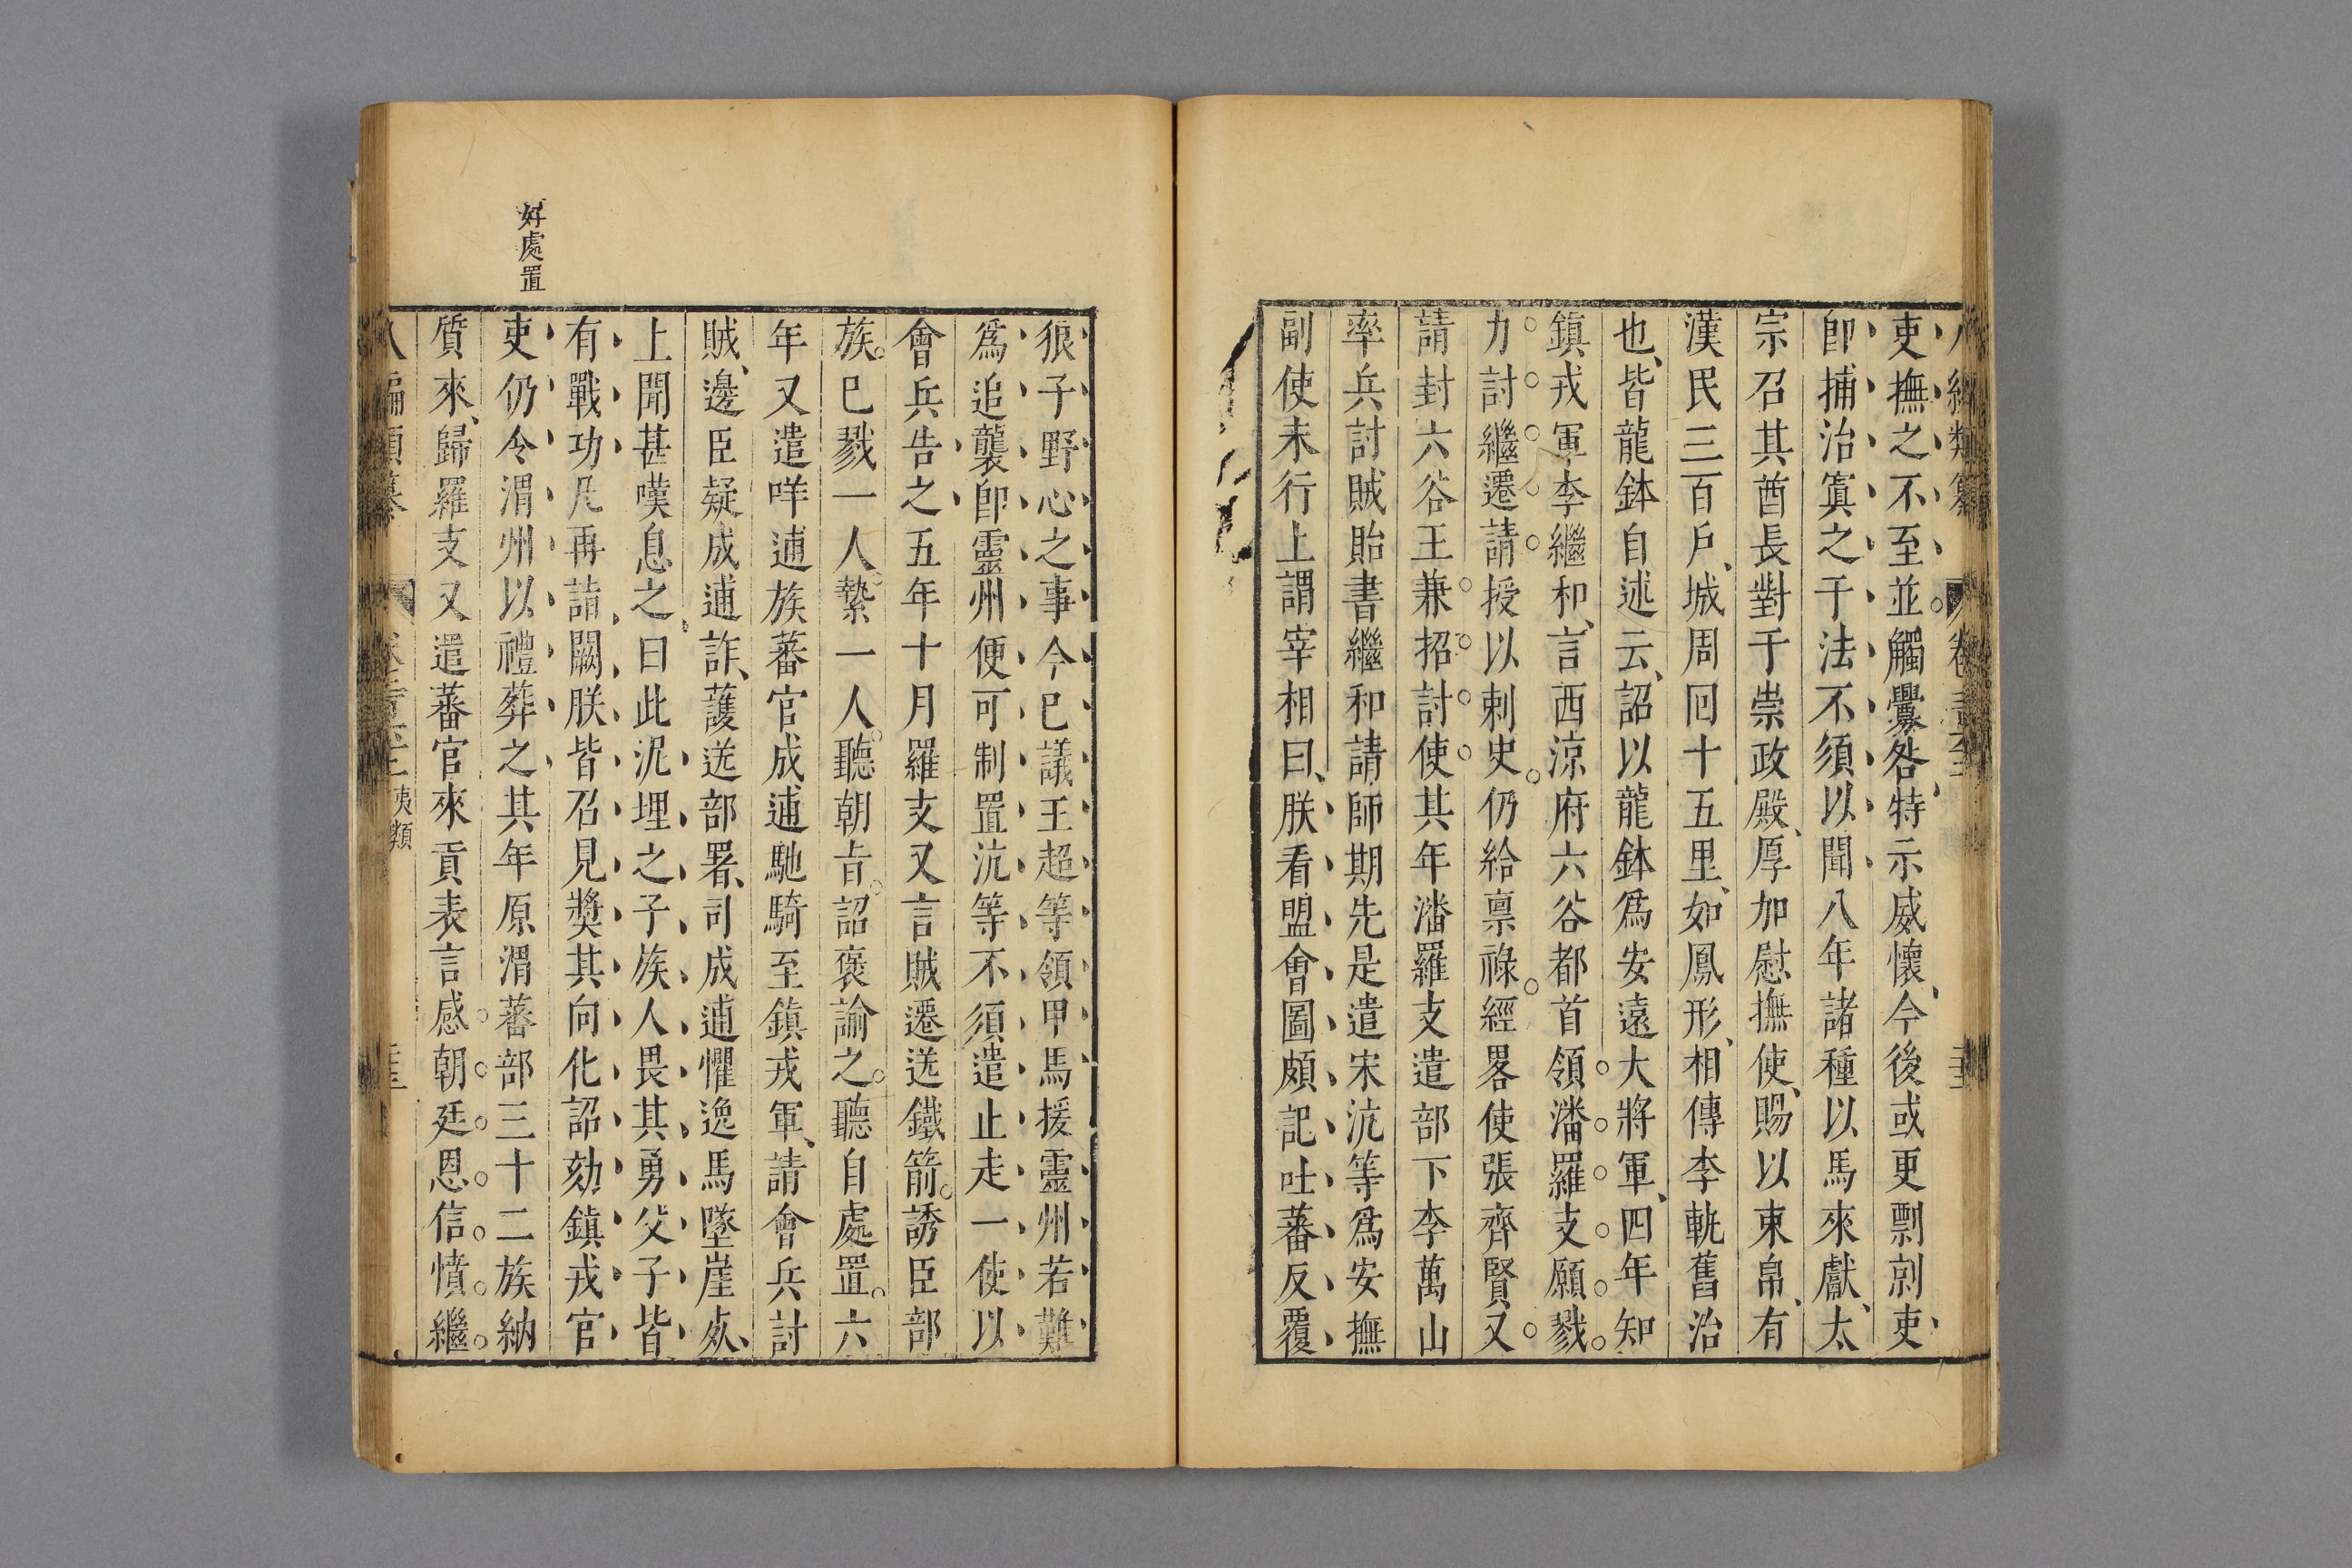 吏撫之不至並觸釁咎特示威懷今後或更剽剠吏
卽捕治寘之于法不須以聞八年諸種以馬來獻太
宗召其酋長對于崇政殿厚加慰撫使賜以束帛有
漢民三百戶城周回十五里如鳳形相傳李軌舊治
也皆龍鉢自述云詔以龍鉢爲安遠大將軍四年知
鎮戎軍李繼和言西涼府六谷都首領潘羅支願戮
力討繼遷請授以刺史仍給禀祿經畧使張齊賢又
請封六谷王兼招討使其年潘羅支遣部下李萬山
率兵討賊貽書繼和請師期先是遣宋沆等爲安撫
副使未行上謂宰相曰朕看盟會圖頗記吐蕃反覆
狼子野心之事今已議王超等領甲馬援靈州若難
爲追襲卽靈州便可制置沆等不須遣止走一使以
會兵告之五年十月羅支又言賊遷送鐵箭誘臣部
族已戮一人縶一人聽朝旨詔褒諭之聽自處置六
年又遣咩逋族蕃官成逋馳騎至鎮戎軍請會兵討
賊邊臣疑成逋詐護送部署司成逋懼逸馬墜崖死
上聞甚嘆息之曰此泥埋之子族人畏其勇父子皆
有戰功凡再詣闕朕皆召見獎其向化詔劾鎮戎官
吏仍令渭州以禮葬之其年原渭蕃部三十二族納
質來歸羅支又遣蕃官來貢表言感朝廷恩信憤繼
好處置